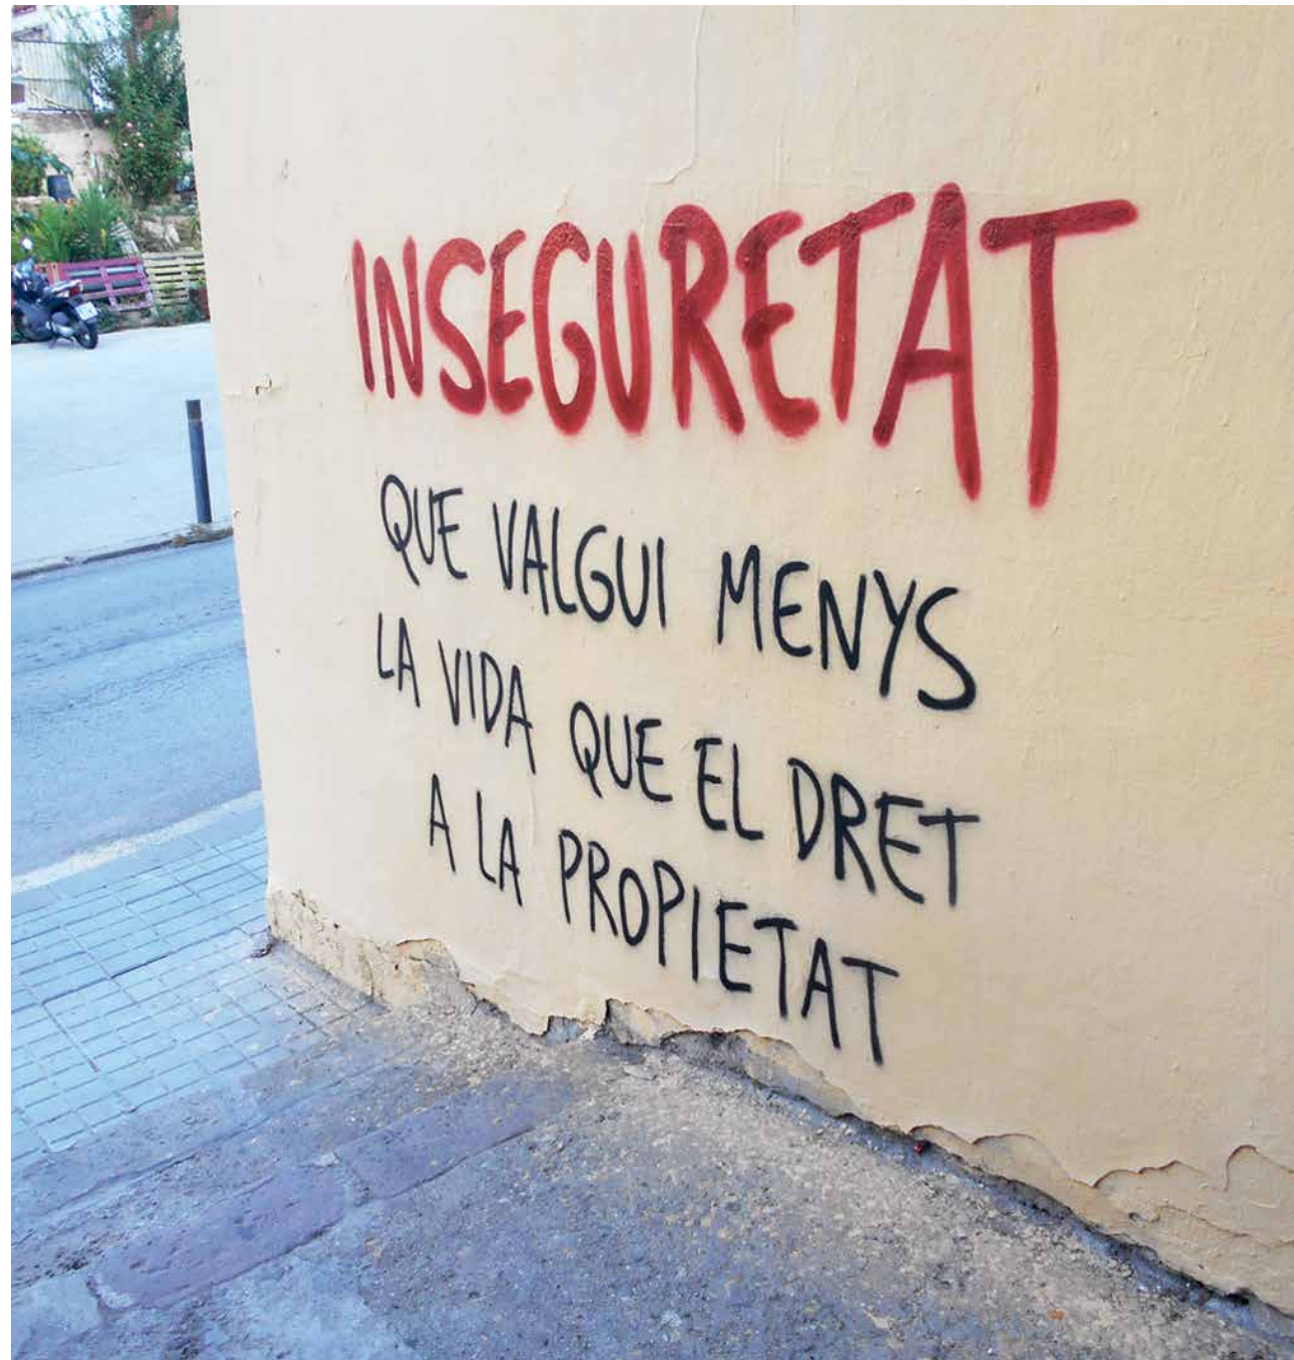 INSEGURETAT
QUE VALGUI MENYS
LA VIDA QUE EL DRET
A LA PROPIETAT